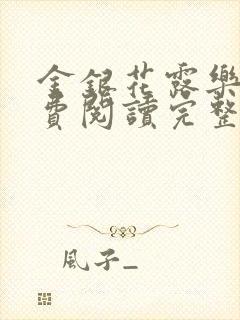 金銀花露樂
費閱讀完整
風子_